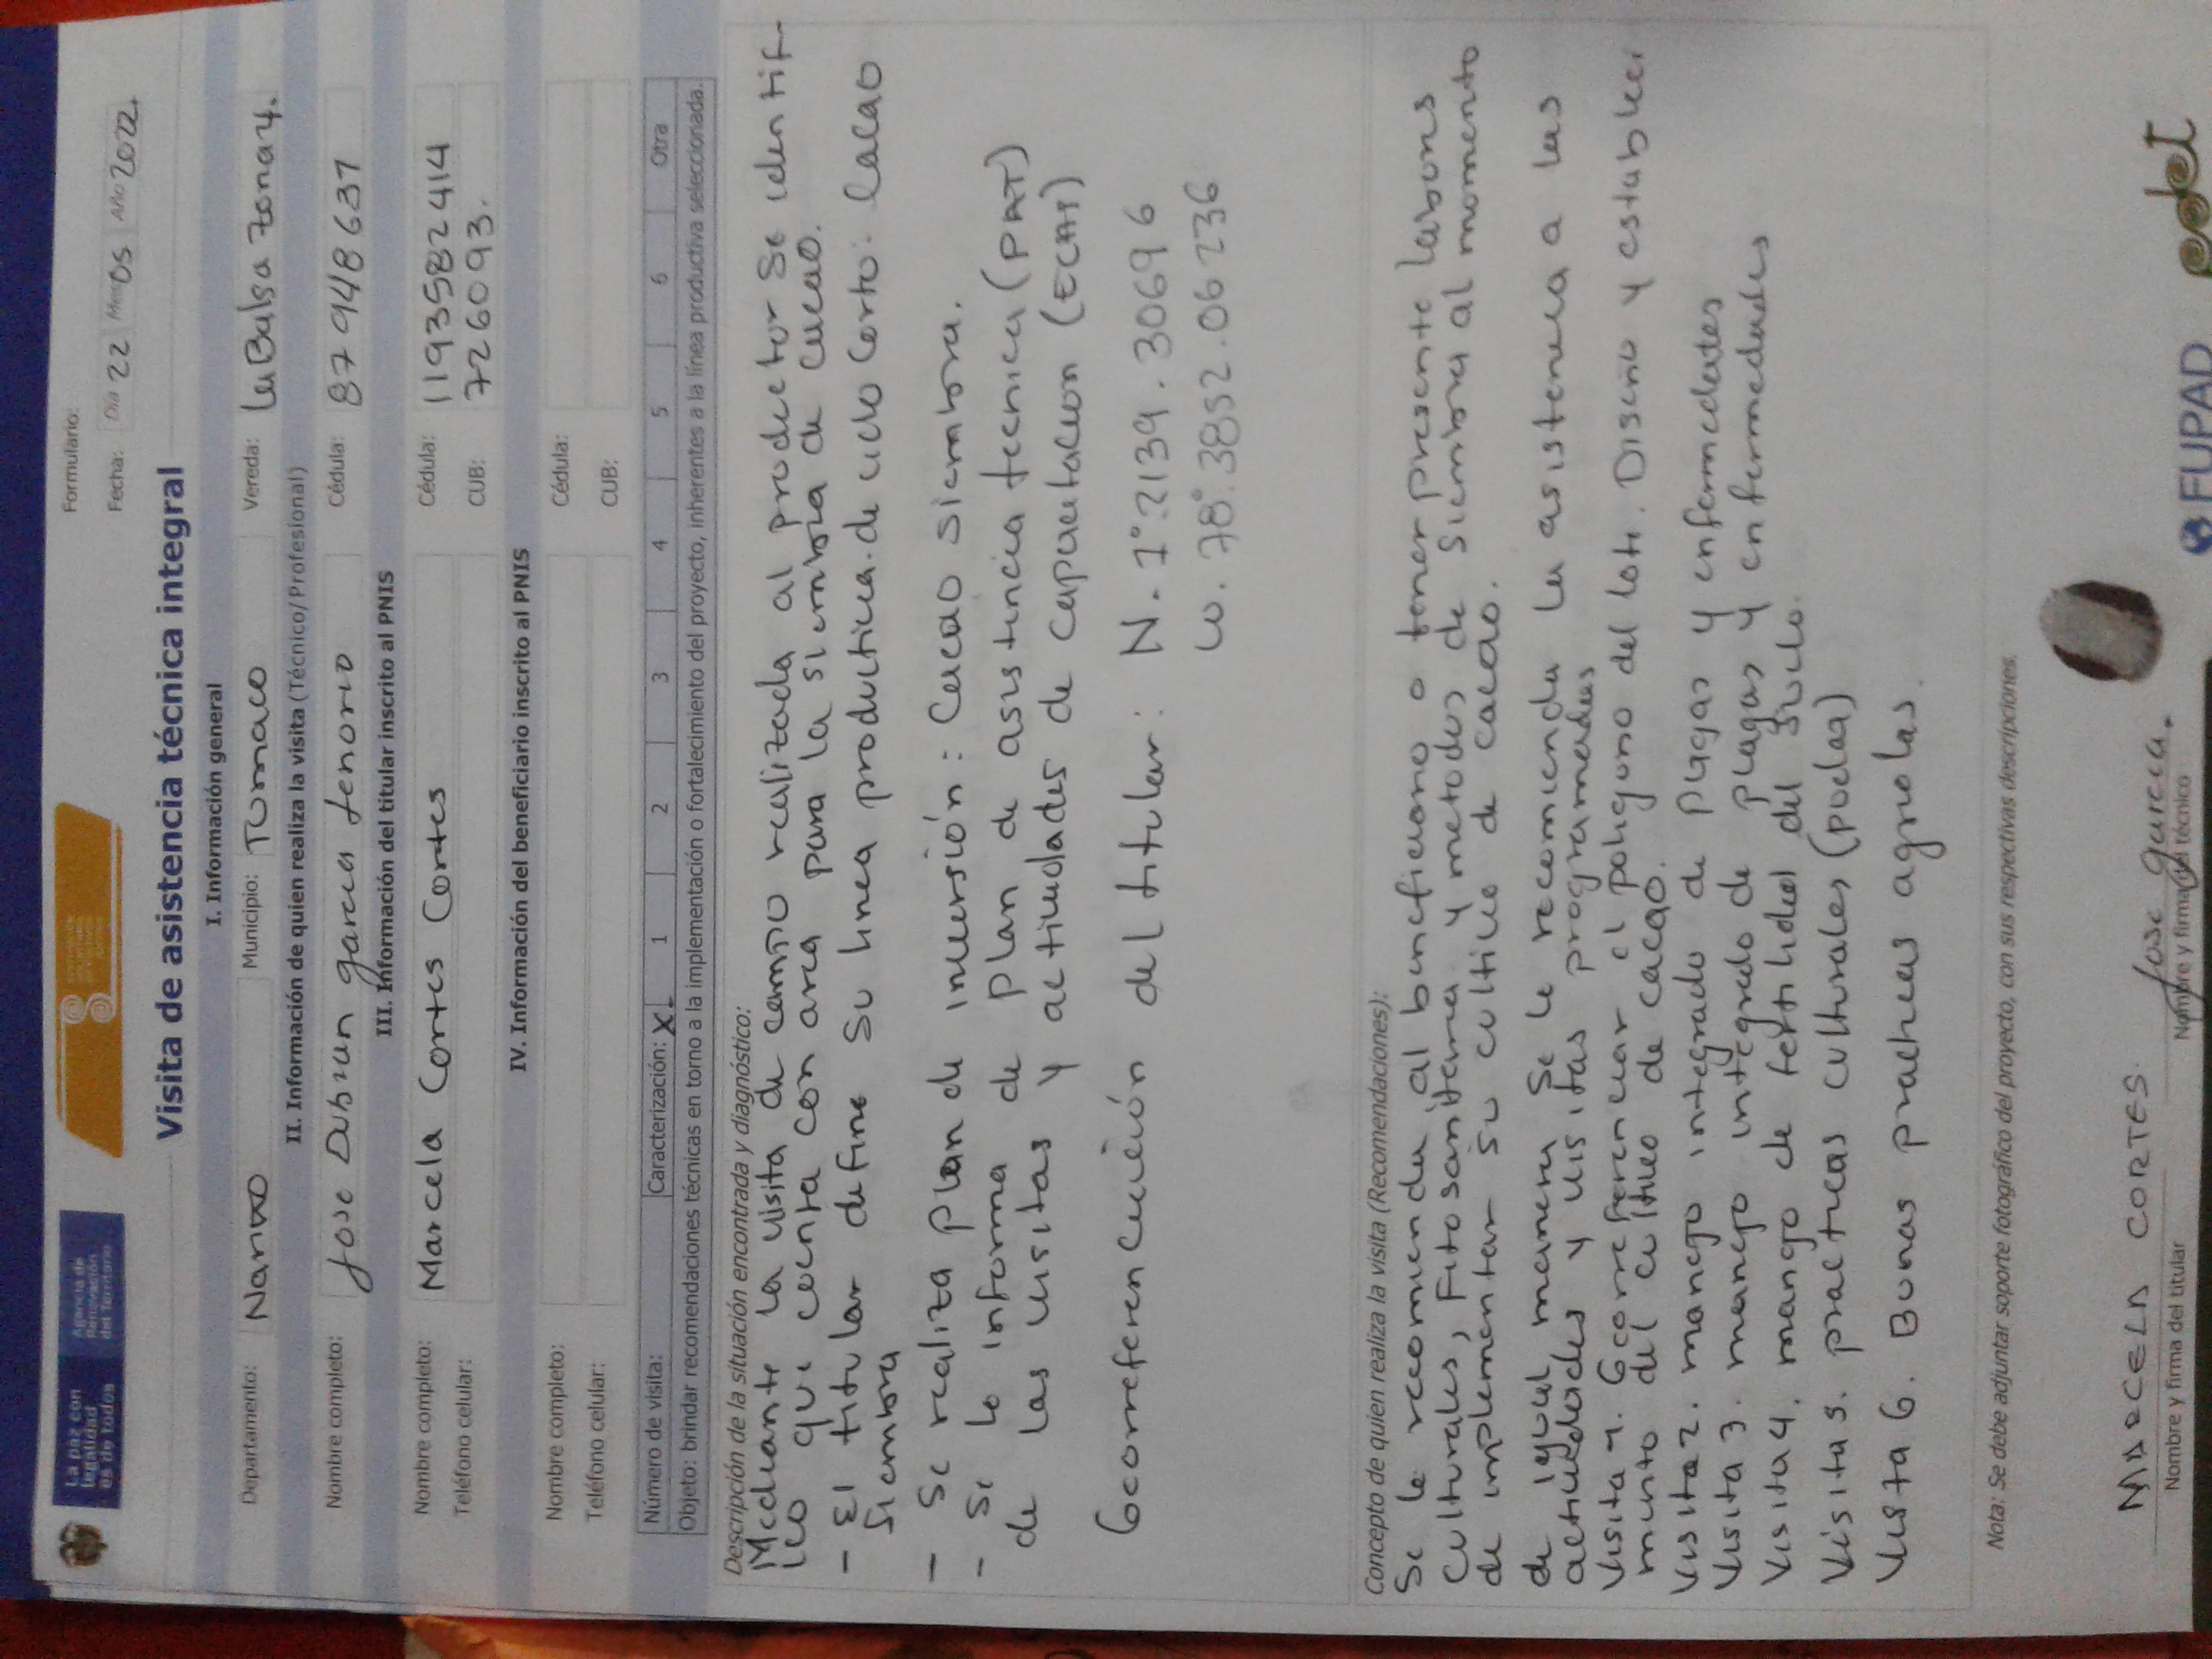 La paz con
legalidad
es de todos
Agencia de
Renovación
del Territorio
Formulario:
Fecha: Día 22 Mes 05 Año 2022
Visita de asistencia técnica integral
I. Información general
Departamento: Nariño Municipio: Tumaco Vereda: La Balsa zona 4.
II. Información de quien realiza la visita (Técnico/Profesional)
Nombre completo: Jose Dubran garcia tenorio Cédula: 87948637
III. Información del titular inscrito al PNIS
Nombre completo: Marcela Cortes Cortes Cédula: 1193582414
Teléfono celular: CUB: 726093.
IV. Información del beneficiario inscrito al PNIS
Nombre completo: Cédula:
Teléfono celular: CUB:
Número de visita: Caracterización: X 1 2 3 4 5 6 Otra
Objeto: brindar recomendaciones técnicas en torno a la implementación o fortalecimiento del proyecto, inherentes a la línea productiva seleccionada.
Descripción de la situación encontrada y diagnóstico:
Mediante la visita de campo realizada al productor Se identif-
ico que cuenta con area para la siembra de cacao.
- El titular define su linea productiva de ciclo corto: Cacao
Siembra
- Se realiza plan de inversión: Cacao siembra.
- Se lo informa de plan de asistencia tecnica (PAT)
de las visitas y actividades de capacitacion (ECAS)
Georreferenciación del titular: N. 1°.2139.30696
W. 78°.3852.06236
Concepto de quien realiza la visita (Recomendaciones):
Se le recomienda al beneficiario a tener presente labores
culturales, Fitosanitaria y metodos de siembra al momento
de implementar su cultivo de cacao.
de igual manera Se le recomienda la asistencia a las
actividades y visitas programadas
Visita 1. Georreferenciar el poligono del lote. Diseño y estableci
miento del cultivo de cacao.
Visita 2. manejo integrado de plagas y enfermedades
Visita 3. manejo integrado de plagas y enfermedades
Visita 4. manejo de fertilidad del suelo.
Visita 5. practicas culturales (podas)
Visita 6. Buenas practicas agricolas.
Nota: Se debe adjuntar soporte fotográfico del proyecto, con sus respectivas descripciones.
MARCELA CORTES.
Jose garcia.
Nombre y firma del titular
Nombre y firma del técnico
FUPAD